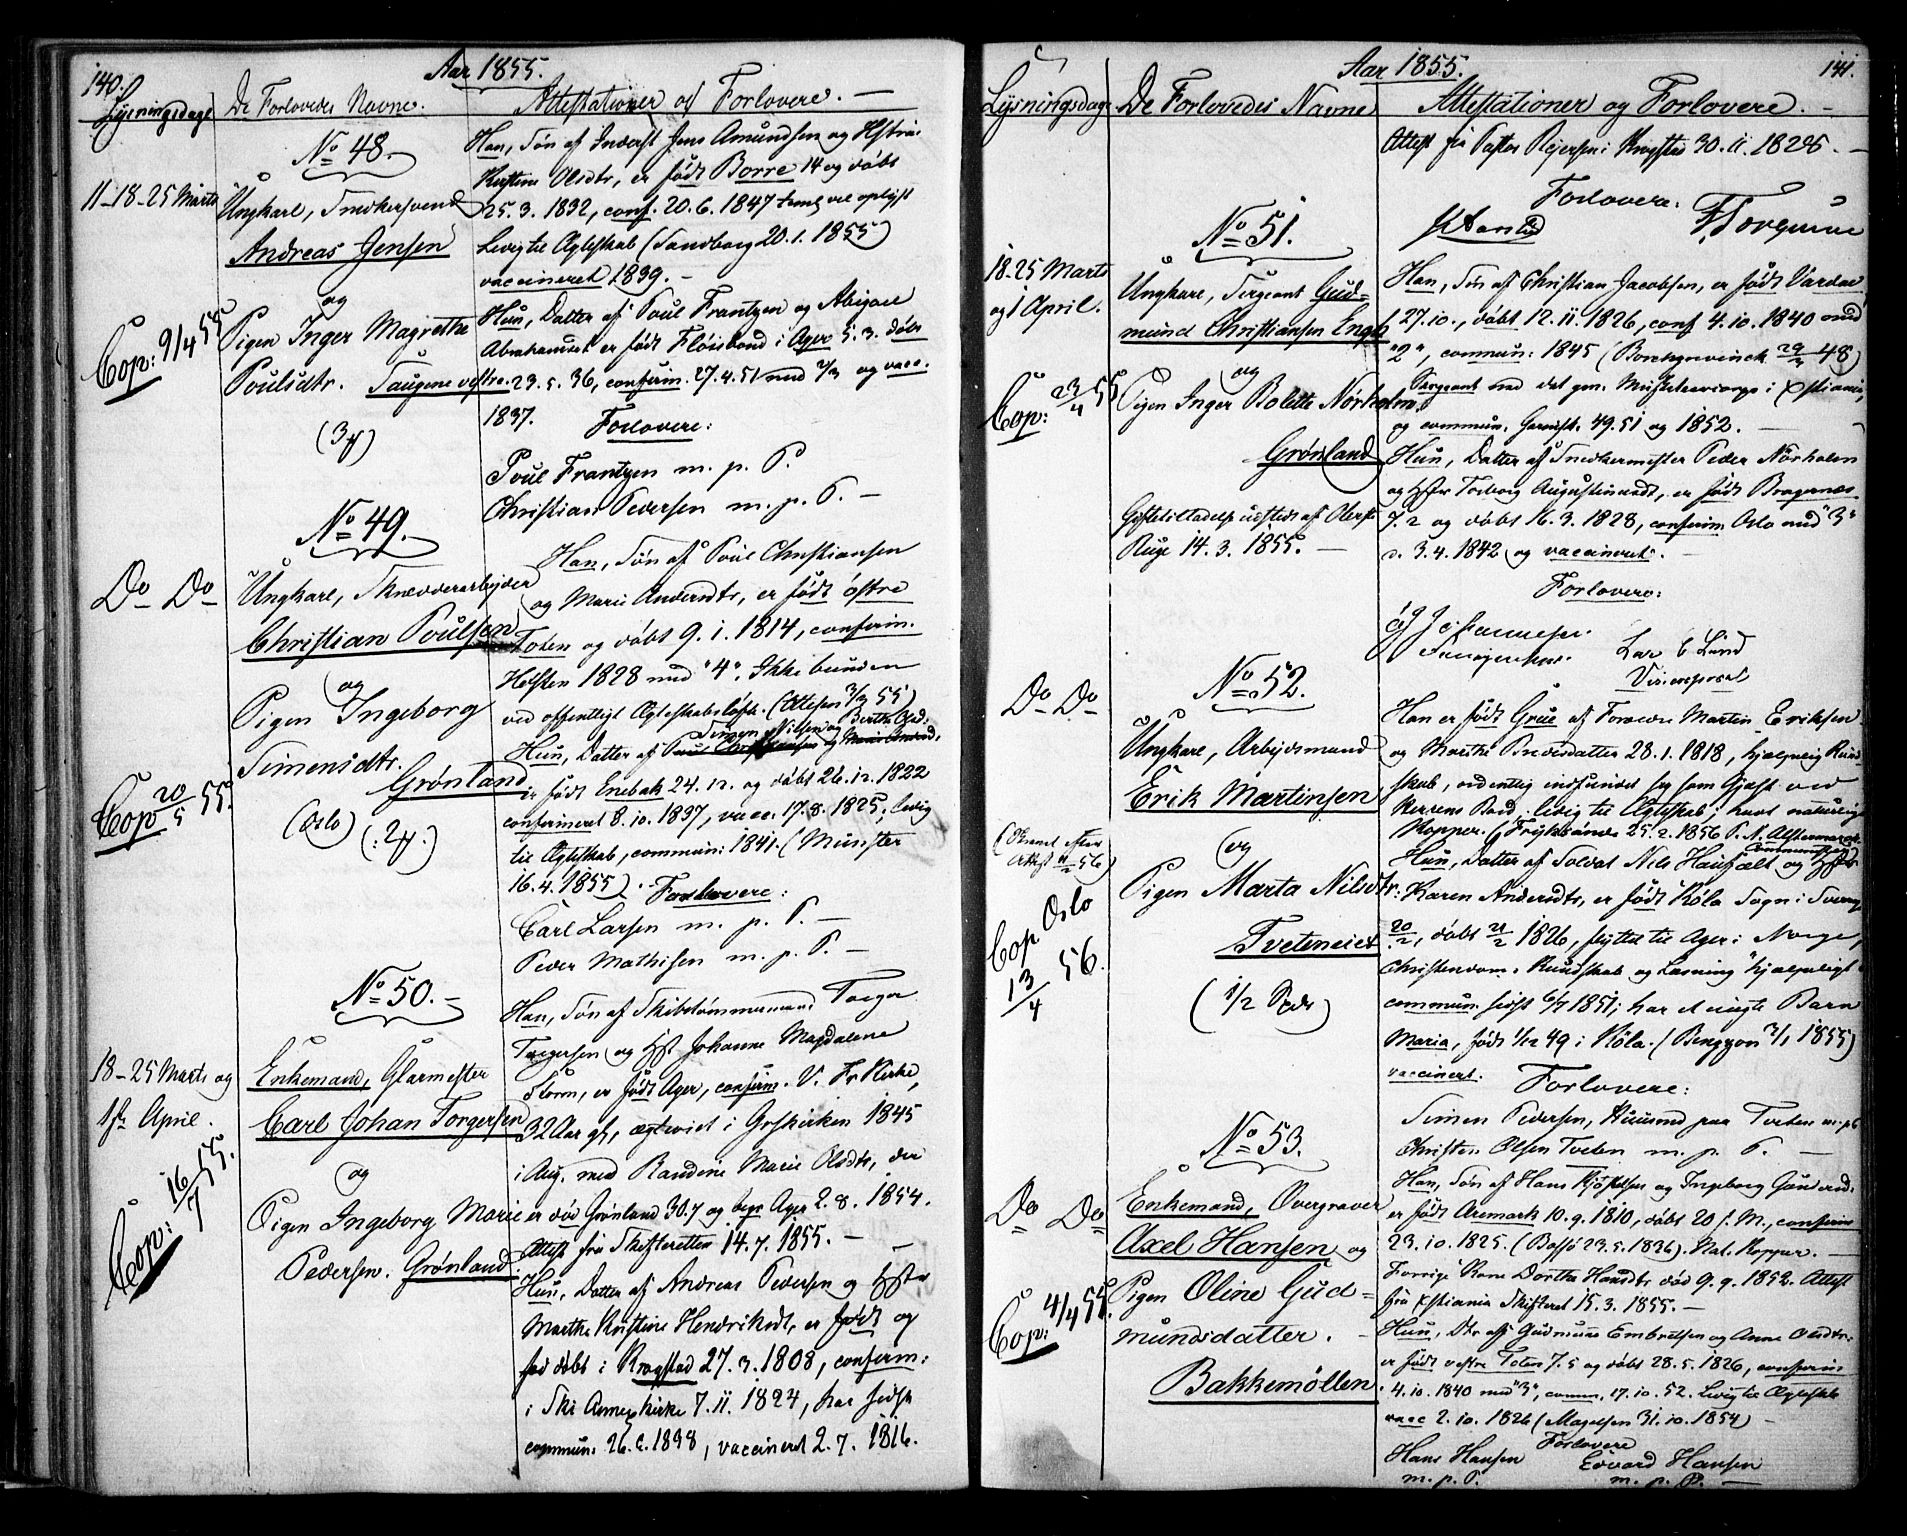 140.
Aar 1855.
Lysningsdage
De Forlovedes Navne.
Attestationer og Forlovere. —
No 48. —
11–18–25 Marts
Ungkarl, Snedkersvend
Andreas Jensen
og
Pigen Inger Magrethe
Poulsdtr. Saugene vestre.
Cop: 9/4 55
Han, Søn af Inderst Jens Amundsen og Hstru
Kirstine Olsdtr, er født Borre 14 og døbt
25. 3. 1832, conf. 20. 6. 1847 vel oplyst
Ledig til Ægteskab (Sandborg 20. 1. 1855)
vaccineret 1839. —
Hun, Datter af Poul Frantzen og Abigael
Abrahamsdt er født Fløisbond i Ager 5. 3. døbt
23. 5. 36, confirm. 27. 4. 51 med og vacc.
1837. Forlovere:
Poul Frantzen m. p. P.
Christian Pedersen m. p. P. —
No 49. —
Do Do
Ungkarl, Skrædderarbejder
Christian Poulsen
og
Pigen Ingeborg
Simensdtr.
Grønland
(Oslo)
Cop 20/5 55.
Han, Søn af Poul Christiansen
og Marie Andersdtr, er født østre
Toten og døbt 9. 1. 1814, confirm.
Høsten 1828 med "4". Ikke bunden
ved offentligt Ægteskabsløfte. (Attest 3/3 55)
Simen Nilsen og Berthe
Hun, Datter af
er født Enebak 24. 12. og døbt 26. 12. 1822
confirmeret 8. 10. 1837, vacc. 17. 8. 1825, ledig
til Ægteskab, commun: 1841. (Münster
16. 4. 1855). Forlovere:
Carl Larsen m. p. P. —
Peder Mathisen m. p. P. —
No 50. —
18–25 Marts og
1ste April.
Enkemand, Glarmester
Carl Johan Torgersen
og
Pigen Ingeborg Marie
Pedersen. Grønland.
Cop: 16/7 55.
Han, Søn af Skibstømmermand Torger
Torgersen og Hst Johanne Magdalene
Storm, er født Ager, confirm. V. Fr Kirke,
32 Aar gl, ægteviet i Grskirken 1845
i Aug. med Randine Marie Olsdtr, der
er død Grønland 30. 7 og begr Ager 2. 8. 1854.
Attest fra Skifteretten 14. 7. 1855. —
Hun, Datter af Andreas Pedersen og Hstr
Marthe Kirstine Hendriksdt, er født og
døbt i Krogstad 27. 3. 1808, confirm:
i Ski Annexkirke 7. 11. 1824, har sidst
commun: 1838, vaccineret 2. 7. 1816.
141.
Aar 1855.
Lysningsdage
De Forlovedes Navne
Attestationer og Forlovere. —
Attest fra Pastor Rejersen i Krogstad 30. 11. —
Forlovere:
No 51.
18–25 Marts
og 1 April.
Ungkarl, Sergeant Gud-
mund Christiansen Engh
og
Pigen Inger Bolette Nørholm
Grønland
Giftetilladelse udstedt af Oberst
Ruge 14. 3. 1855. —
Cop: 23/4 55
Han, Søn af Christian Jacobsen, er født Vardal
27. 10., døbt 12. 11. 1826, conf 4. 10. 1840 med
"2", commun: 1845 (Borchgrevinck 48)
Sergeant ved det gev. Musketeercorps i Xstiania,
og commun. Garnisk. 49. 51 og 1852. —
Hun, Datter af Snedkermester Peder Nørholm
og Hstr Torborg Augustinusdt, er født Bragernæs
7. 2 og døbt 16. 3. 1828, confirm Oslo med "3"
d. 3. 4. 1842 og vaccineret. —
Forlovere:
Lars E Lund
No 52.
Do Do
Ungkarl, Arbejdsmand
Erik Martinsen
og
Pigen Marta Nilsdtr:
Tveteneiet
(1/2 Spdr)
Cop Oslo
13/4 56.
Han er født Grue af Forældre Martin Eriksen
og Marthe 28. 1. 1818, hjælpelig Kund-
skab, ordentlig indfundet sig som Gjæst ved
Herrens Bord. ledig til Ægteskab; havt naturlige
Kopper.
Hun, Datter af Soldat Nils og Hstr
Karen Andersdtr, er født Köla Sogn i Sverige
20/2, døbt 21/2 1826, flyttet til Ager i Norge,
Christendoms Kundskab og Læsning "hjælpeligt
commun. sidst 6/7 1851; har et uægte Barn
Maria, født 1/12 49 i Köla. (Bengzon 3/1 1855)
vaccinert.
Forlovere:
Simen Pedersen, Huusmd paa Tveten m. p. P
Christen Olsen Tveten m. p. P. —
No 53.
Do Do
Enkemand, Overgraver
Axel Hansen og
Pigen Oline Gud-
mundsdatter. —
Bakkemøllen.
Cop: 4/4 55.
Han, Søn af Hans og Ingeborg
er født Aremark 10. 9. 1810, døbt 20 s. M., confirm
23. 10. 1825. (Bassø 23. 5. 1836). Nat. Kopper. —
Forrige Kone Dorthe Hansdtr død 9. 9. 1852. Attest
fra Xstiania Skifteret 15. 3. 1855. —
Hun, Dtr af Gudmund Embretsen og Anne Olsdtr:
er født vestre Toten 7. 5 og døbt 28. 5. 1826, confirm
4. 10. 1840 med "3", comm. 17. 10. 52. Ledig til Ægteskab
vacc 2. 10. 1826 (Magelsen 31. 10. 1854) —
Forlovere
Hans Hansen
m. p. P.
Edvard Hansen
m. p. P. —